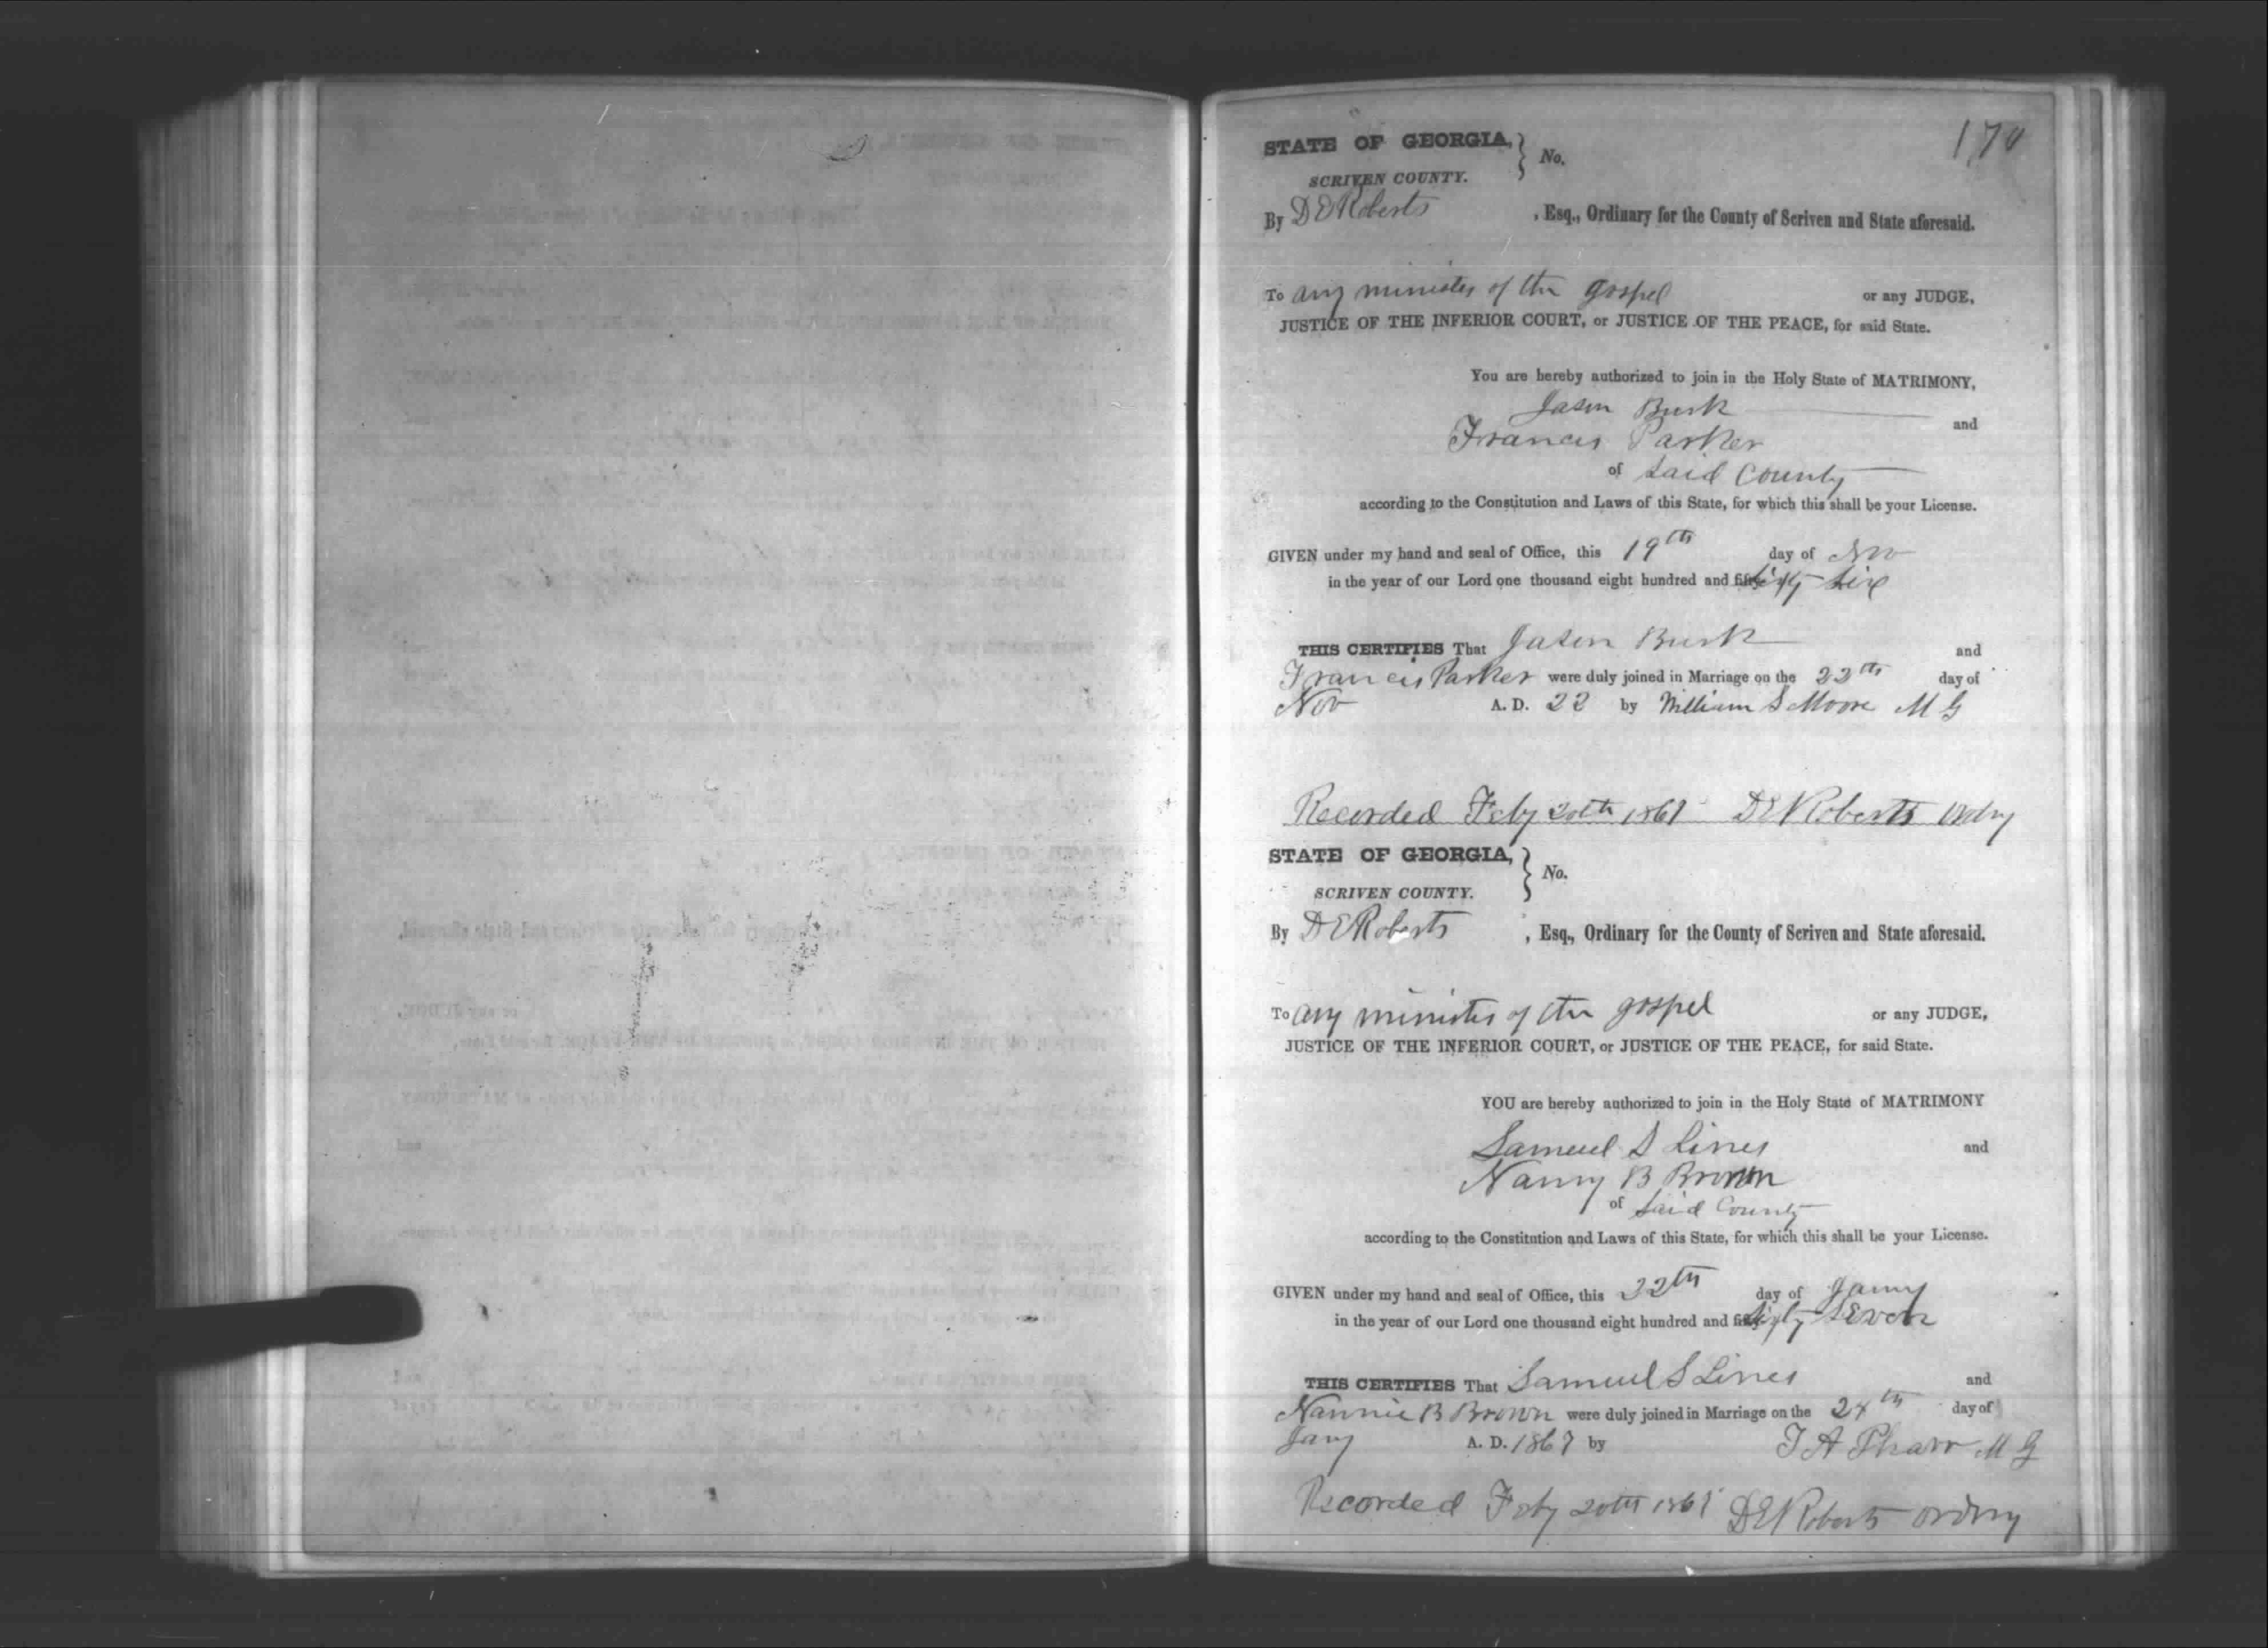 170
STATE OF GEORGIA, } No.
SCRIVEN COUNTY.
By D E Roberts , Esq., Ordinary for the County of Scriven and State aforesaid.
To any minister of the gospel or any JUDGE,
JUSTICE OF THE INFERIOR COURT, or JUSTICE OF THE PEACE, for said State.
You are hereby authorized to join in the Holy State of MATRIMONY,
Jason Burk and
Francis Parker
of Said County
according to the Constitution and Laws of this State, for which this shall be your License.
GIVEN under my hand and seal of Office, this 19th day of Nov
in the year of our Lord one thousand eight hundred and Sixty Six
THIS CERTIFIES That Jason Burk and
Francis Parker were duly joined in Marriage on the 22th day of
Nov A. D. 22 by William S Moore M G
Recorded Feby 20th 1867 D E Roberts Ordry
STATE OF GEORGIA, } No.
SCRIVEN COUNTY.
By D E Roberts , Esq., Ordinary for the County of Scriven and State aforesaid.
To any minister of the gospel or any JUDGE,
JUSTICE OF THE INFERIOR COURT, or JUSTICE OF THE PEACE, for said State.
YOU are hereby authorized to join in the Holy State of MATRIMONY
Samuel S Lines and
Nanny B Brown
of Said County
according to the Constitution and Laws of this State, for which this shall be your License.
GIVEN under my hand and seal of Office, this 22th day of Jany
in the year of our Lord one thousand eight hundred and Sixty Seven
THIS CERTIFIES That Samuel S Lines and
Nannie B Brown were duly joined in Marriage on the 24th day of
Jany A. D. 1867 by T A Pharr M G
Recorded Feby 20th 1867 D E Roberts Ordry